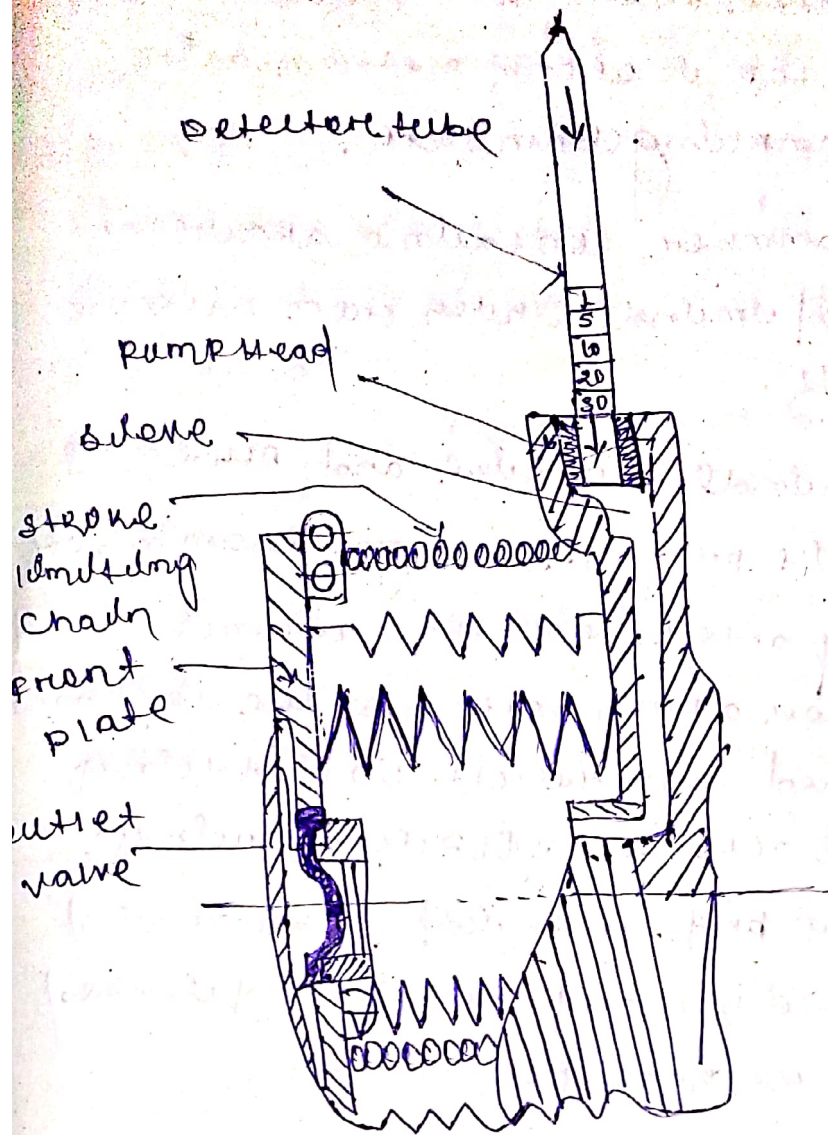 Detector tube
1
5
10
20
30
Pump Head
sleeve
stroke
limiting
chain
Front
plate
outlet
valve